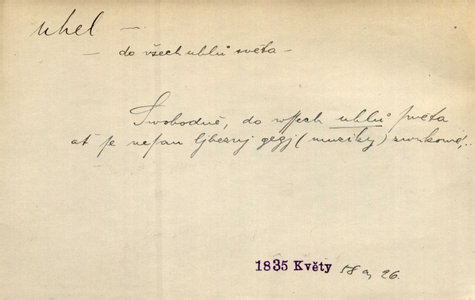 uhel —
— do všech uhlů světa —
Swobodně, do wſſech uhlů ſwěta
ať ſe neſau ljbeznj gegj (muziky) zwukowé,..
1835 Květy 58 a, 26.